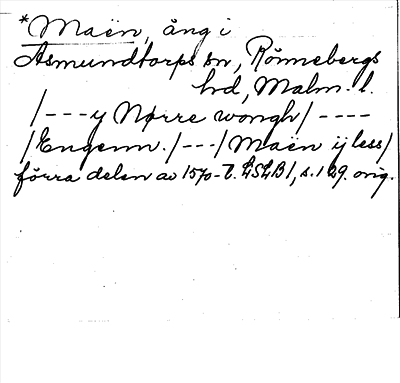 *Maën, äng i
Asmundtorps sn, Rönnebergs
hd, Malm. l.
/---y Nørre wongh/----
/Engenn./---/Maën ij less/
förra delen av 1570-t. LSLB1, s. 129. orig.